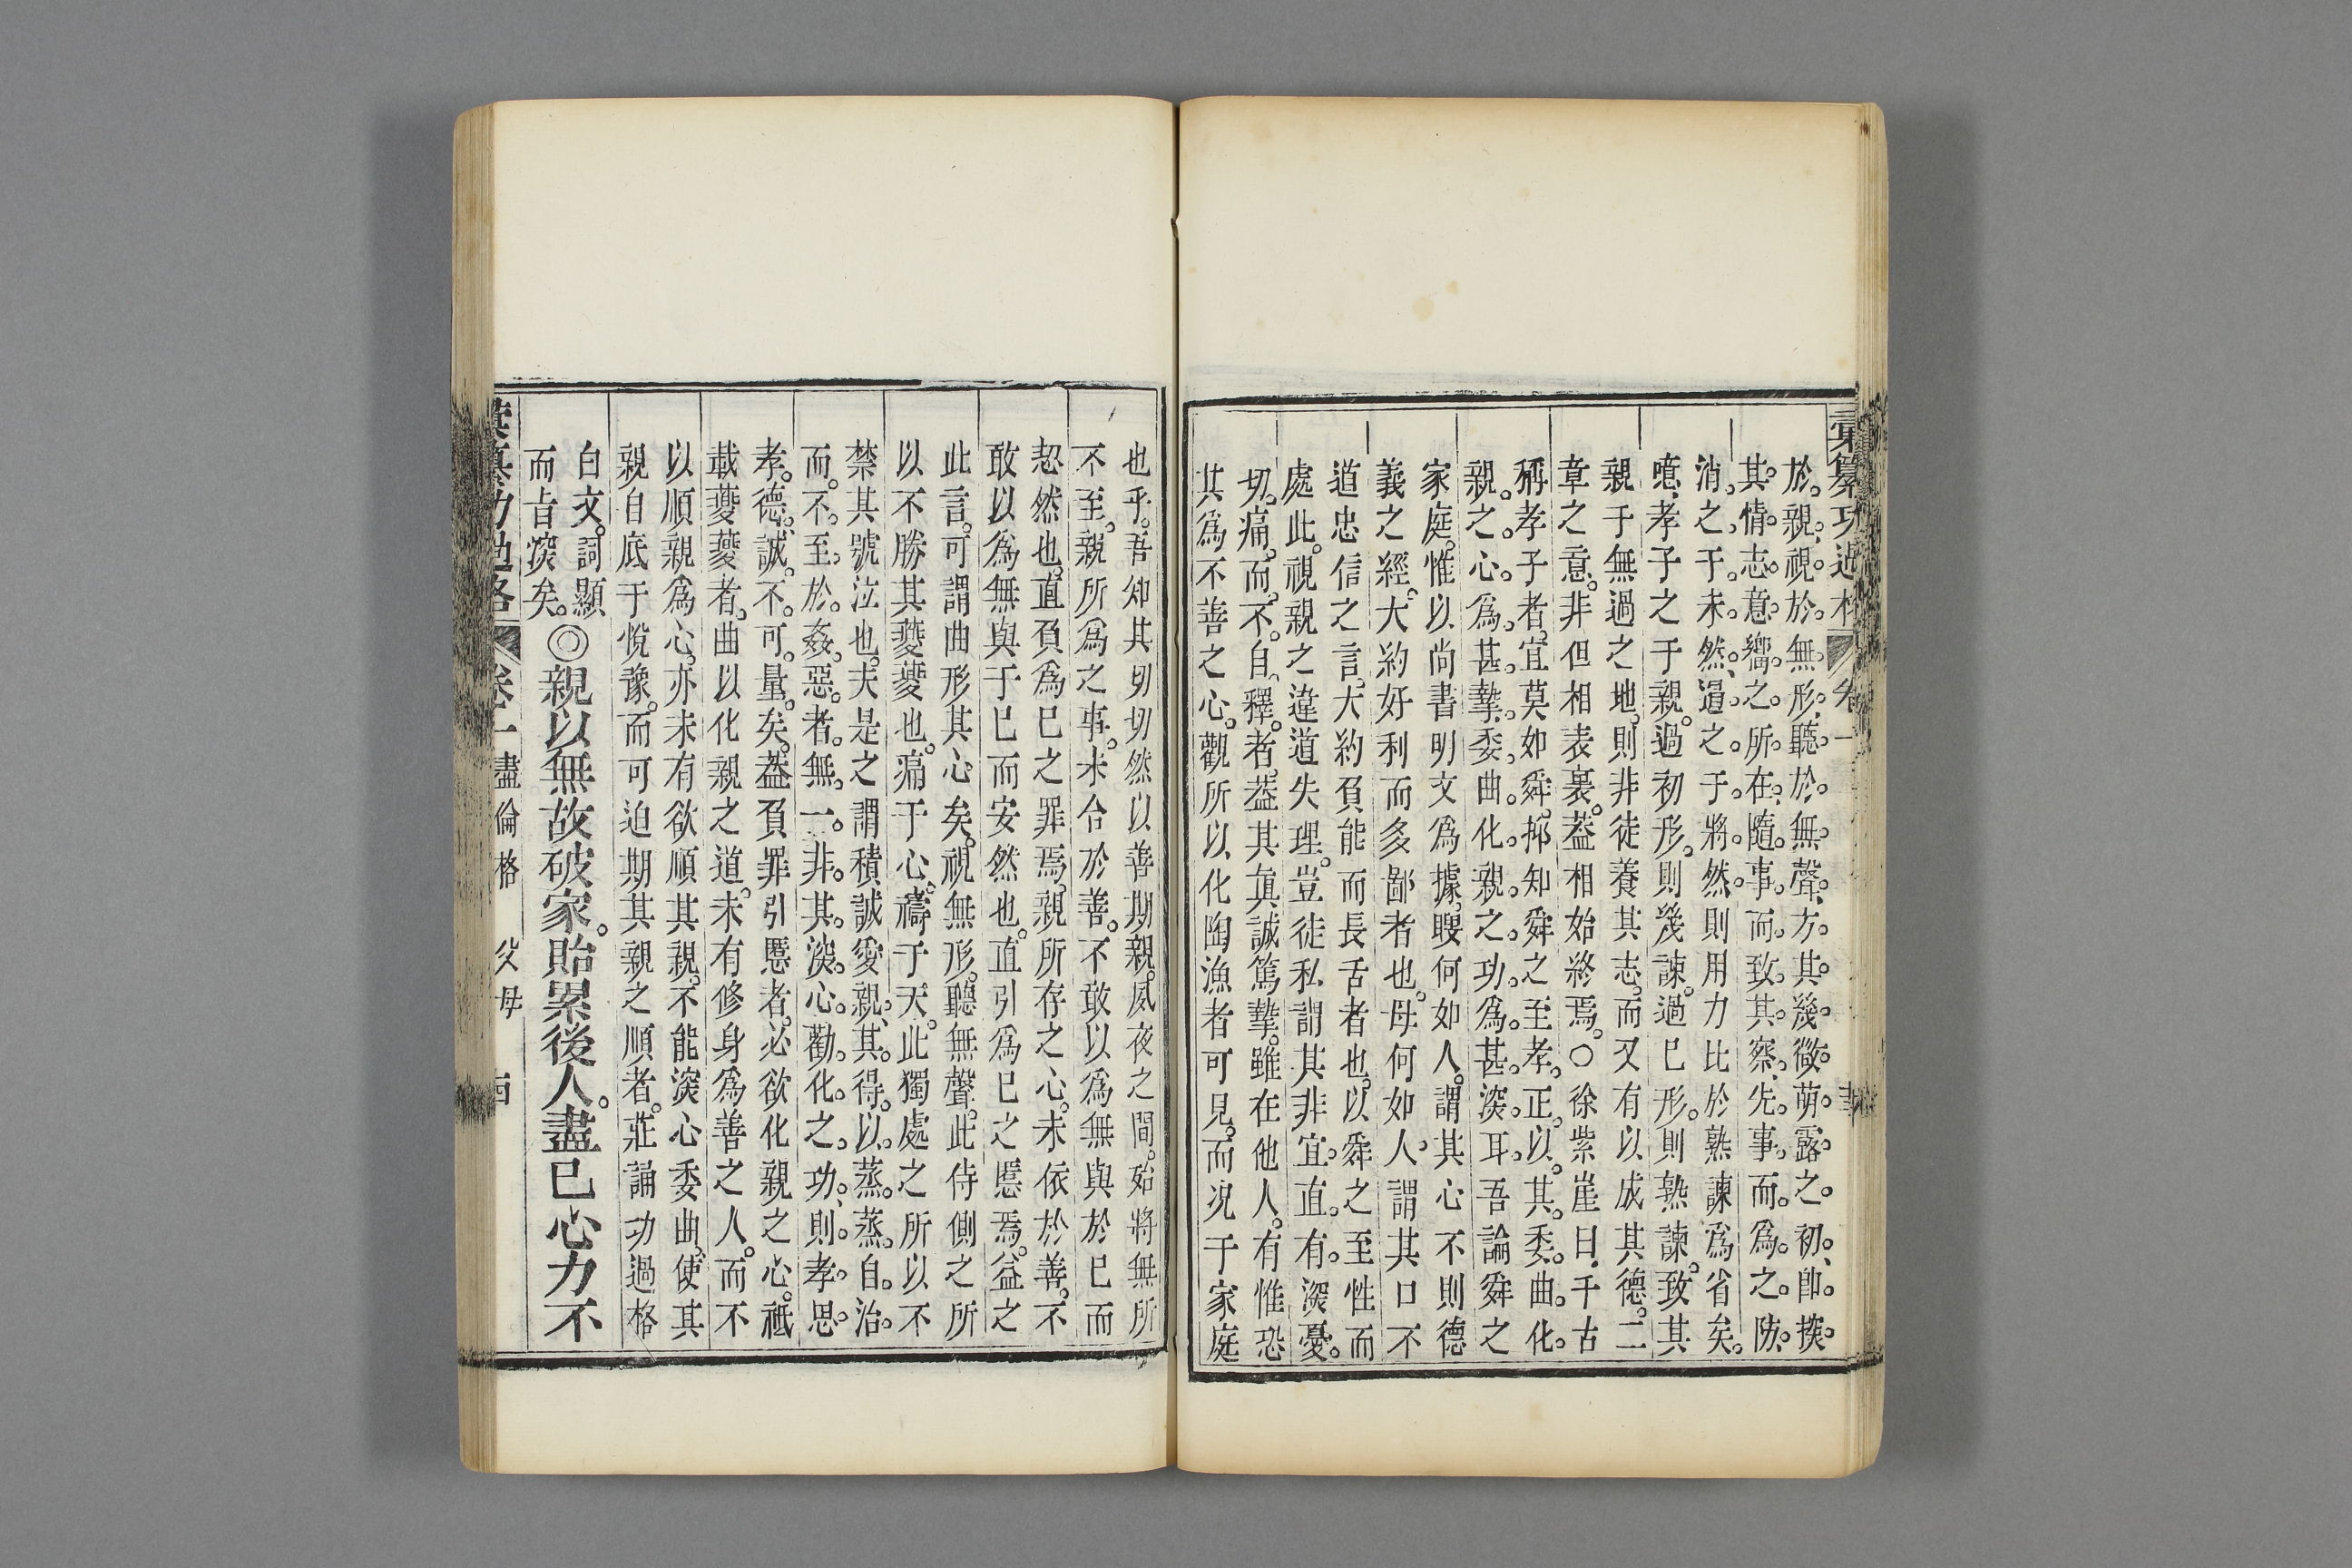 彙纂功過格 卷一
於親視於無形聽於無聲方其幾微萌露之初卽揆
其情志意嚮之所在隨事而致其察先事而爲之防
消之于未然遏之于將然則用力比於熟諫爲省矣
噫孝子之于親過初形則幾諫過已形則熟諫致其
親于無過之地則非徒養其志而又有以成其德二
章之意非但相表裏葢相始終焉○徐紫崖曰千古
稱孝子者宜莫如舜抑知舜之至孝正以其委曲化
親之心爲甚摯委曲化親之功爲甚深耳吾論舜之
家庭惟以尚書明文爲據瞍何如人謂其心不則德
義之經大約好利而多鄙者也母何如人謂其口不
道忠信之言大約負能而長舌者也以舜之至性而
處此視親之違道失理豈徒私謂其非宜直有深憂
切痛而不自釋者葢其眞誠篤摯雖在他人有惟恐
其爲不善之心觀所以化陶漁者可見而况于家庭
也乎吾知其切切然以善期親夙夜之間殆將無所
不至親所爲之事未合於善不敢以爲無與於已而
恝然也直負爲已之罪焉親所存之心未依於善不
敢以爲無與于已而安然也直引爲已之慝焉益之
此言可謂曲形其心矣視無形聽無聲此侍側之所
以不勝其夔夔也痛于心禱于天此獨處之所以不
禁其號泣也夫是之謂積誠愛親其得以蒸蒸自治
而不至於姦惡者無一非其深心勸化之功則孝思
孝德誠不可量矣葢負罪引慝者必欲化親之心祗
載夔夔者曲以化親之道未有修身爲善之人而不
以順親爲心亦未有欲順其親不能深心委曲使其
親自底于悅豫而可迫期其親之順者莊誦功過格
白文詞顯
而旨深矣◎親以無故破家貽累後人盡已心力不
彙纂功過格 卷一 盡倫格 父母